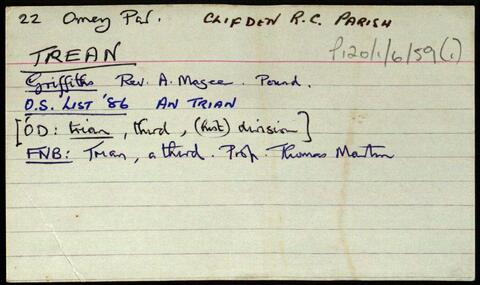 22 Omey Par. CLIFDEN R.C. PARISH
P120/1/6/59(1)
TREAN
Griffiths Rev. A. Magee. Pound.
O.S. LIST '86 AN TRIAN
[OD: trian, third, (hist) division]
FNB: Trian, a third. Prop. Thomas Martin